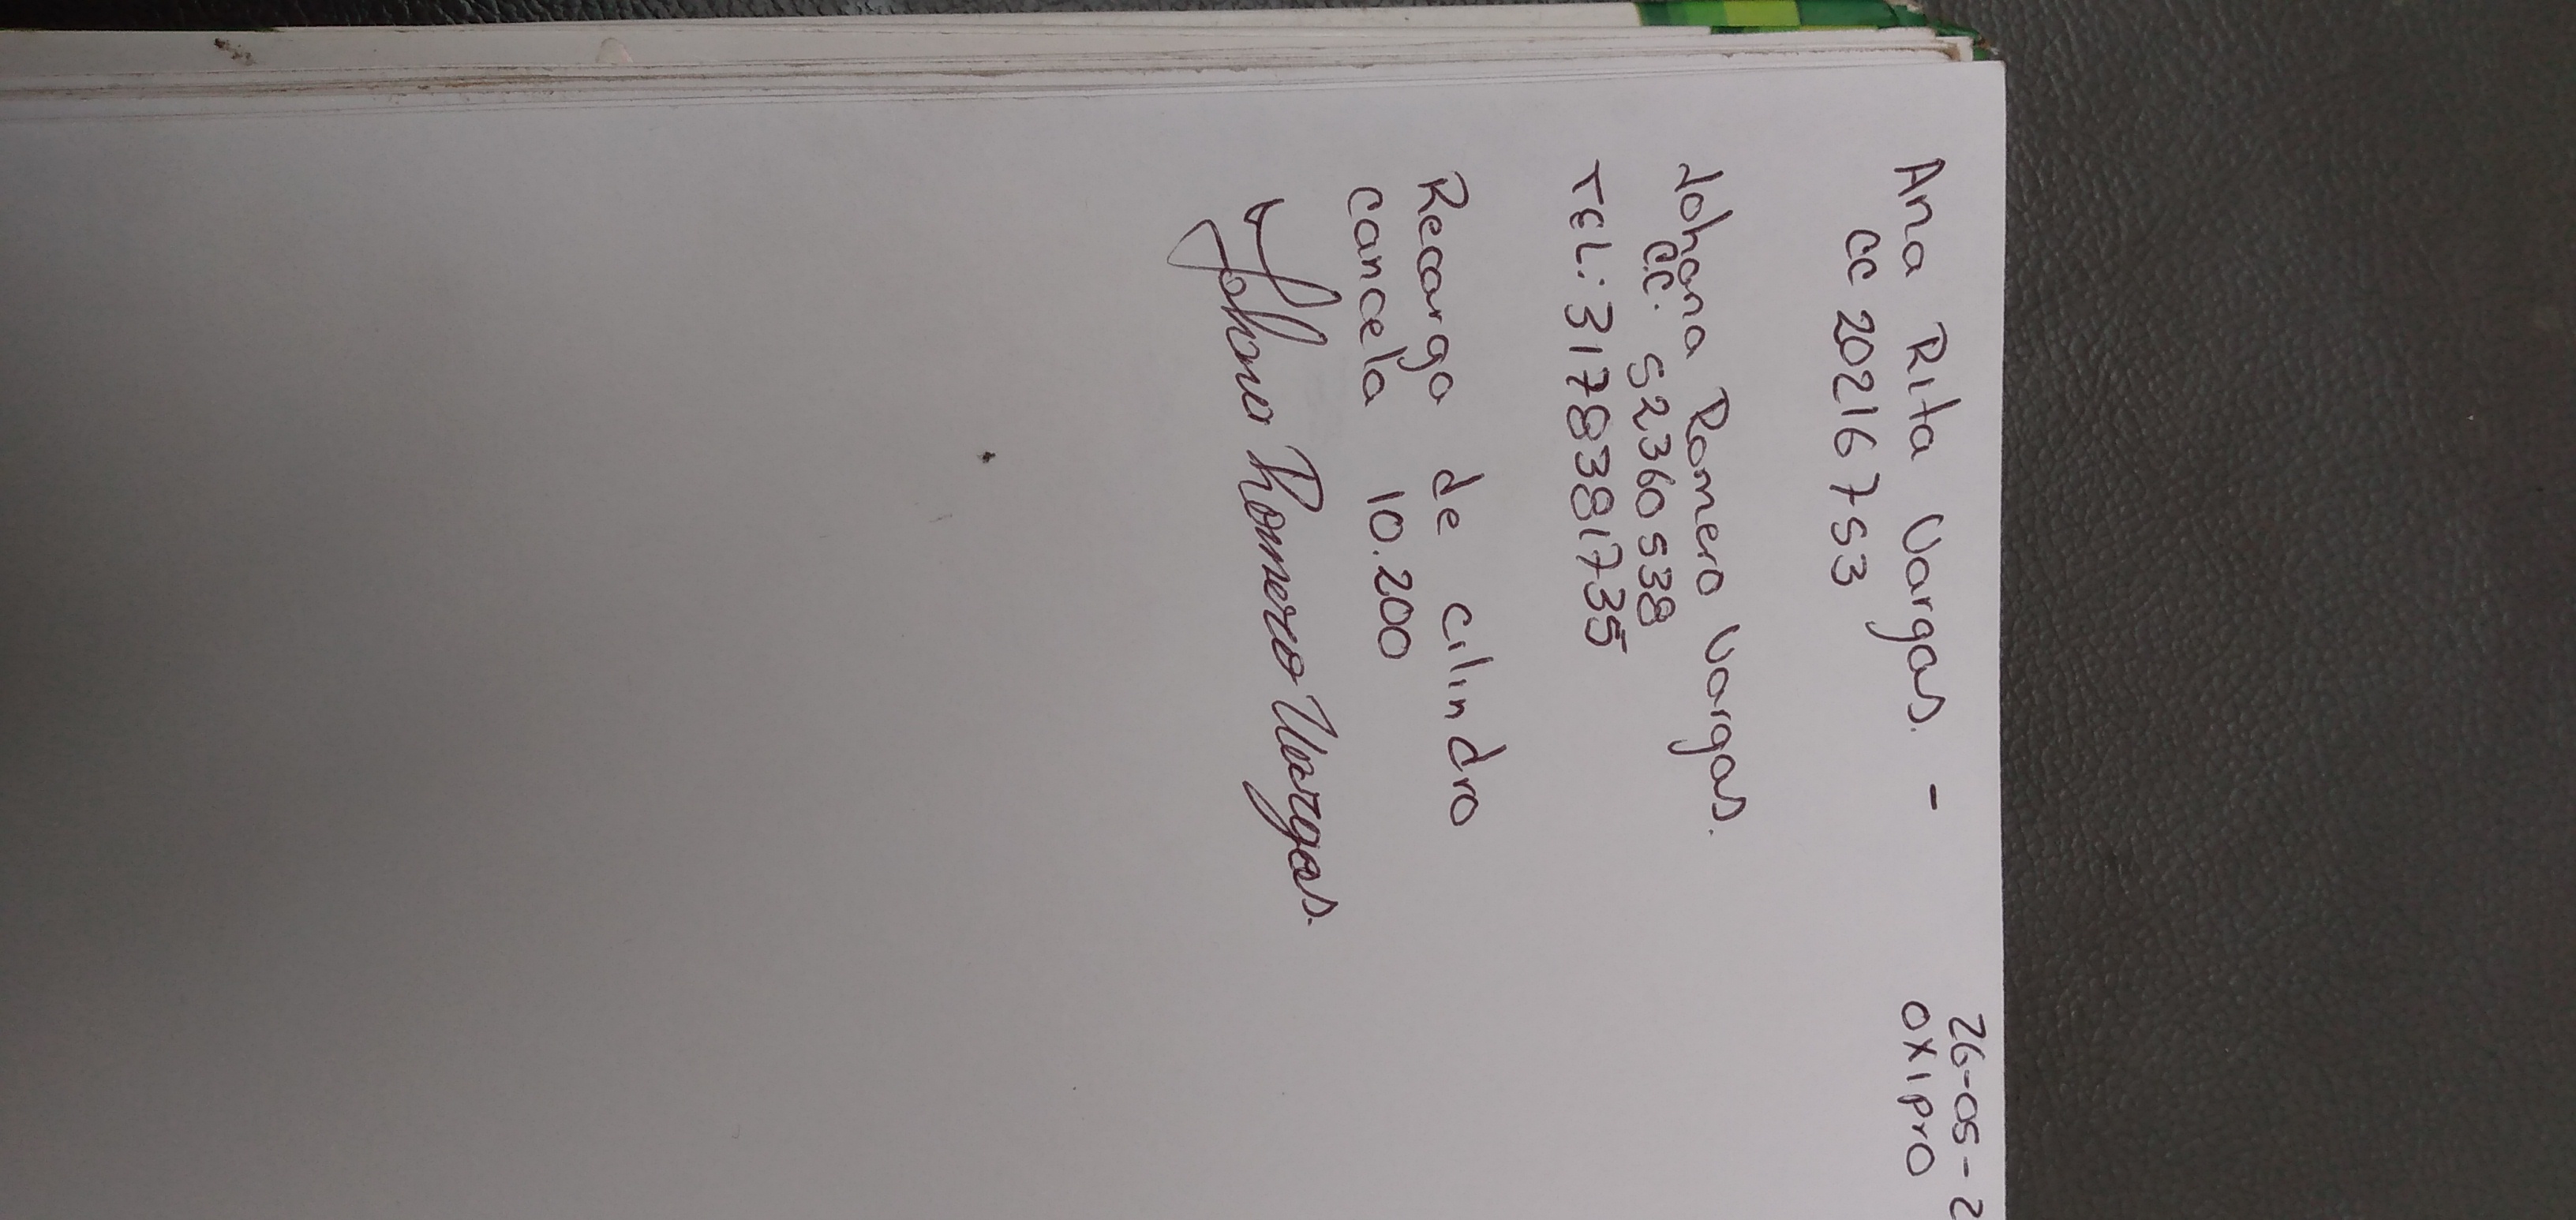 26-05-2
OXIPrO
Ana Rita Vargas. -
CC 20216753
Johana Romero Vargas.
CC. 52360538
TEL: 3178381735
Recarga de cilindro
cancela 10.200
Johana Romero Vargas.